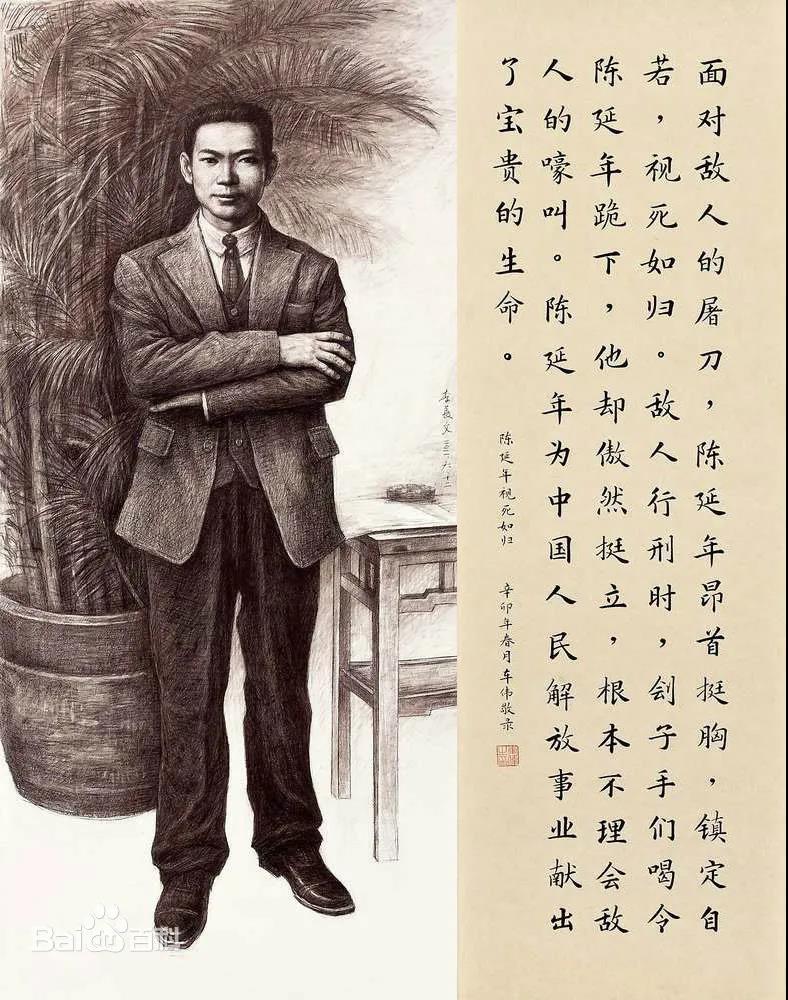 面对敌人的屠刀，陈延年昂首挺胸，镇定自
若，视死如归。敌人行刑时，刽子手们喝令
陈延年跪下，他却傲然挺立，根本不理会敌
人的嚎叫。陈延年为中国人民解放事业献出
了宝贵的生命。
陈延年视死如归 辛卯年春月车伟敬录
Baidu百科